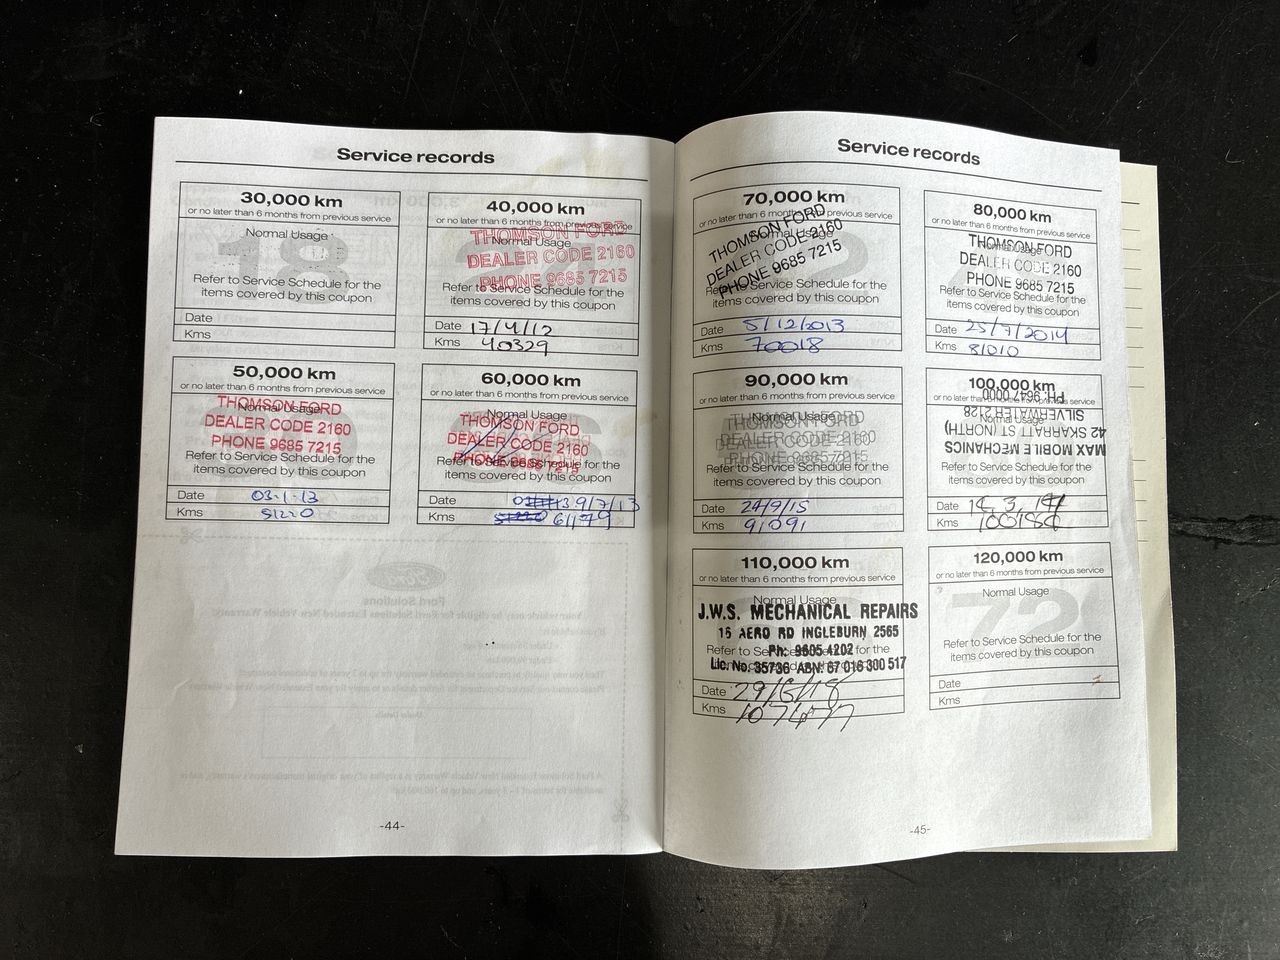 Service records
30,000 km
or no later than 6 months from previous service
Normal Usage
Refer to Service Schedule for the
items covered by this coupon
Date
Kms
40,000 km
or no later than 6 months from previous service
THOMSON FORD
Normal Usage
DEALER CODE 2160
PHONE 9685 7215
Refer to Service Schedule for the
items covered by this coupon
Date 17/4/12
Kms 40329
50,000 km
or no later than 6 months from previous service
THOMSON FORD
Normal Usage
DEALER CODE 2160
PHONE 9685 7215
Refer to Service Schedule for the
items covered by this coupon
Date 03.1.13
Kms 51220
60,000 km
or no later than 6 months from previous service
Normal Usage
THOMSON FORD
DEALER CODE 2160
PHONE 9685 7215
Refer to Service Schedule for the
items covered by this coupon
Date 9/7/13
Kms 61179
-44-
Service records
70,000 km
or no later than 6 months from previous service
THOMSON FORD
Normal Usage
DEALER CODE 2160
PHONE 9685 7215
Refer to Service Schedule for the
items covered by this coupon
Date 5/12/2013
Kms 70018
80,000 km
or no later than 6 months from previous service
THOMSON FORD
Normal Usage
DEALER CODE 2160
PHONE 9685 7215
Refer to Service Schedule for the
items covered by this coupon
Date 25/7/2014
Kms 81010
90,000 km
or no later than 6 months from previous service
Normal Usage
THOMSON FORD
DEALER CODE 2160
PHONE 9685 7215
Refer to Service Schedule for the
items covered by this coupon
Date 24/9/15
Kms 91091
100,000 km
or no later than 6 months from previous service
MAX MOBILE MECHANICS
42 SKARRATT ST (NORTH)
SILVERWATER 2128
PH: 9647 0000
Normal Usage
Refer to Service Schedule for the
items covered by this coupon
Date
Kms
110,000 km
or no later than 6 months from previous service
Normal Usage
J.W.S. MECHANICAL REPAIRS
16 AERO RD INGLEBURN 2565
Ph: 9605 4202
Lic. No. 35736 ABN: 67 016 300 517
Refer to Service Schedule for the
items covered by this coupon
Date
Kms 107477
120,000 km
or no later than 6 months from previous service
Normal Usage
72
Refer to Service Schedule for the
items covered by this coupon
Date
Kms
-45-